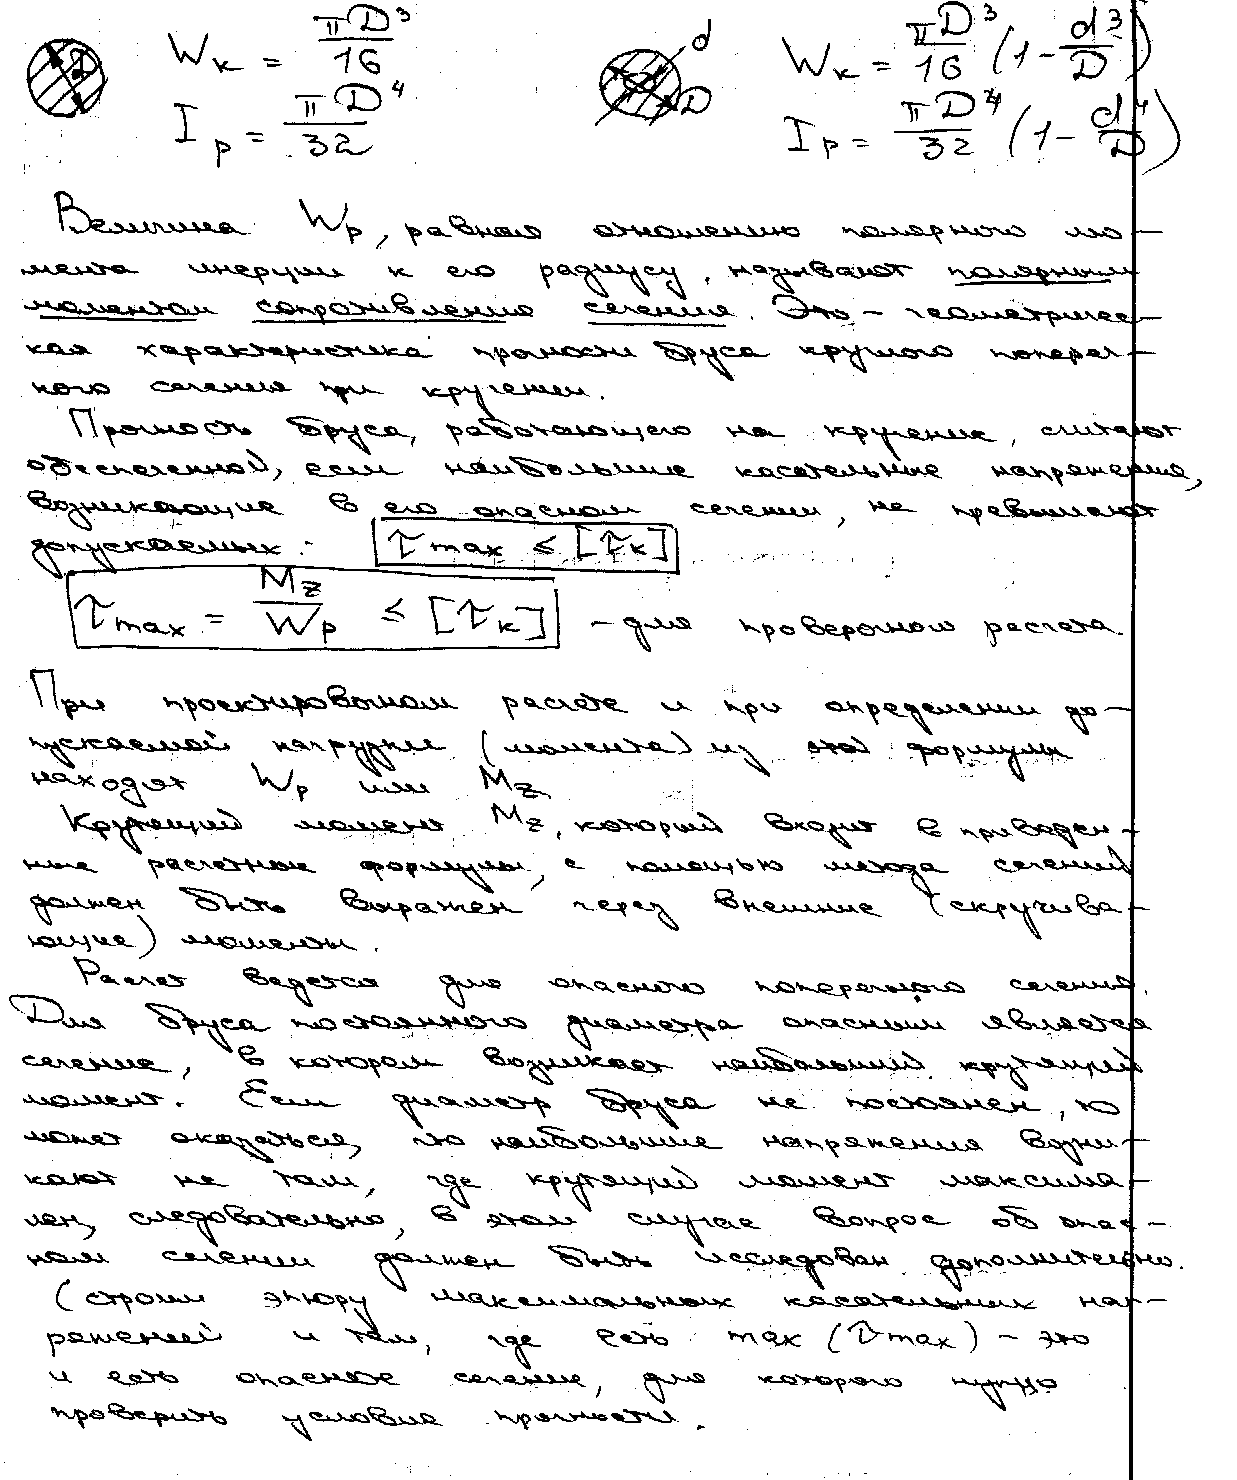 D W_к = πD³/16 d D W_к = πD³/16 (1 - d³/D)
I_р = πD⁴/32 I_р = πD⁴/32 (1 - d⁴/D)
Величина W_р, равная отношению полярного мо-
мента инерции к его радиусу, называют полярным
моментом сопротивления сечения. Это - геометричес-
кая характеристика прочности бруса круглого попереч-
ного сечения при кручении.
Прочность бруса, работающего на кручение, считают
обеспеченной, если наибольшие касательные напряжения,
возникающие в его опасном сечении, не превышают
допускаемых: τ_max ≤ [τ_к]
τ_max = M_z/W_р ≤ [τ_к] - для проверочного расчета.
При проектировочном расчете и при определении до-
пускаемой нагрузки (момента) из этой формулы
находят W_р или M_z.
Крутящий момент M_z, который входит в приведен-
ные расчетные формулы, с помощью метода сечений
должен быть выражен через внешние (скручива-
ющие) моменты.
Расчет ведется для опасного поперечного сечения.
Для бруса постоянного диаметра опасным является
сечение, в котором возникает наибольший крутящий
момент. Если диаметр бруса не постоянен, то
может оказаться, что наибольшие напряжения возни-
кают не там, где крутящий момент максима-
лен, следовательно, в этом случае вопрос об опас-
ном сечении должен быть исследован дополнительно.
(строим эпюру максимальных касательных нап-
ряжений и там, где есть max (τ_max) - это
и есть опасное сечение, для которого нужно
проверить условие прочности.